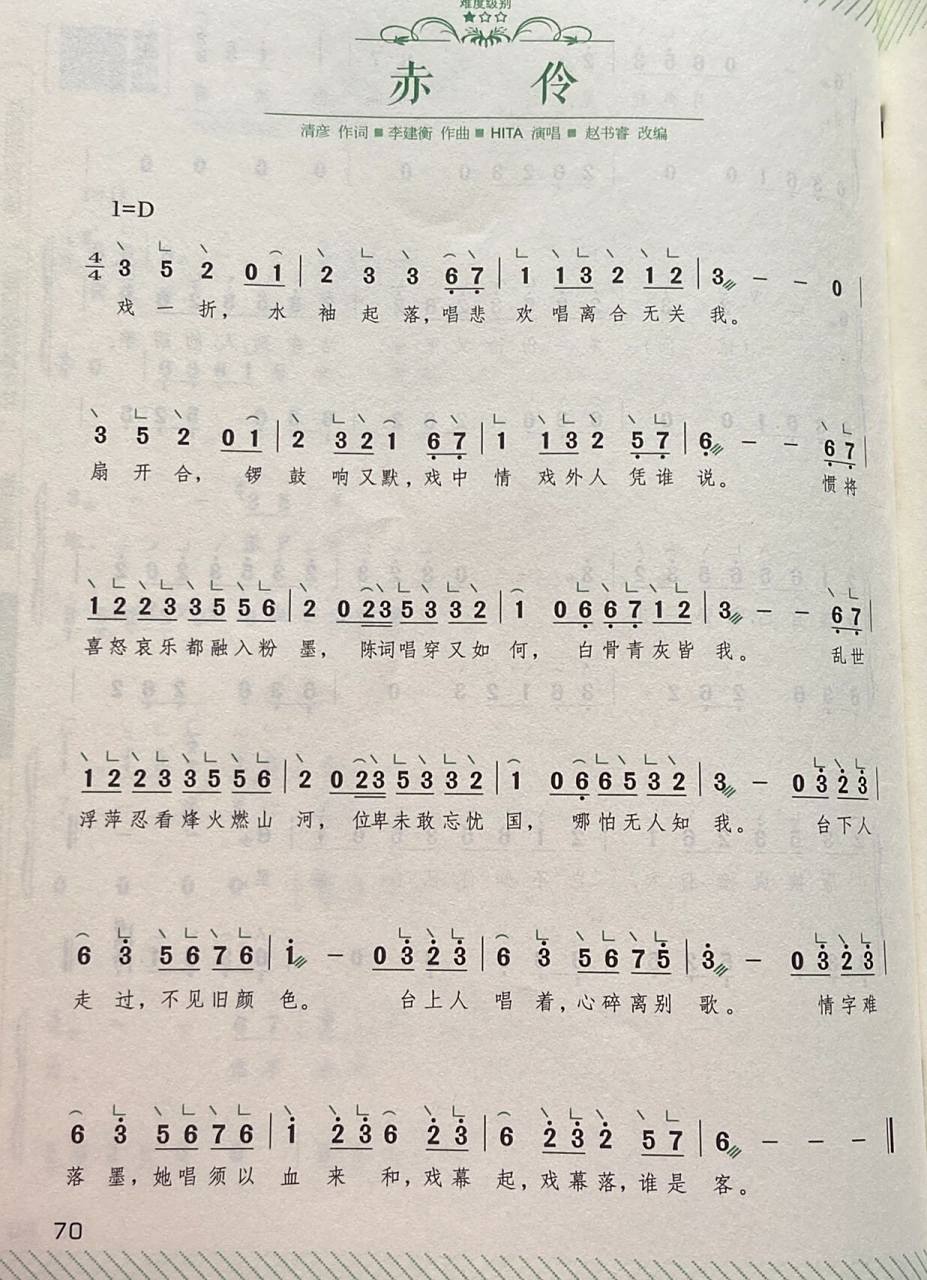 难度级别
★☆☆
赤 伶
清彦 作词 ■ 李建衡 作曲 ■ HITA 演唱 ■ 赵书睿 改编
1=D
4/4 3 5 2 0 1 | 2 3 3 6̣ 7̣ | 1 1 3 2 1 2 | 3 — — 0 |
戏 一 折， 水 袖 起 落，唱 悲 欢 唱 离 合 无 关 我。
3 5 2 0 1 | 2 3 2 1 6̣ 7̣ | 1 1 3 2 5̣ 7̣ | 6̣ — — 6̣ 7̣ |
扇 开 合， 锣 鼓 响 又 默，戏 中 情 戏 外 人 凭 谁 说。 惯 将
1 2 2 3 3 5 5 6 | 2 0 2 3 5 3 3 2 | 1 0 6̣ 6̣ 7̣ 1 2 | 3 — — 6̣ 7̣ |
喜 怒 哀 乐 都 融 入 粉 墨， 陈 词 唱 穿 又 如 何， 白 骨 青 灰 皆 我。 乱 世
1 2 2 3 3 5 5 6 | 2 0 2 3 5 3 3 2 | 1 0 6̣ 6 5 3 2 | 3 — 0 3̇ 2̇ 3̇ |
浮 萍 忍 看 烽 火 燃 山 河， 位 卑 未 敢 忘 忧 国， 哪 怕 无 人 知 我。 台 下 人
6 3̇ 5 6 7 6 | 1̇ — 0 3̇ 2̇ 3̇ | 6 3̇ 5 6 7 5̇ | 3̇ — 0 3̇ 2̇ 3̇ |
走 过，不 见 旧 颜 色。 台 上 人 唱 着，心 碎 离 别 歌。 情 字 难
6 3̇ 5 6 7 6 | 1̇ 2̇ 3̇ 6 2̇ 3̇ | 6 2̇ 3̇ 2̇ 5 7 | 6 — — — ‖
落 墨，她 唱 须 以 血 来 和，戏 幕 起，戏 幕 落，谁 是 客。
70